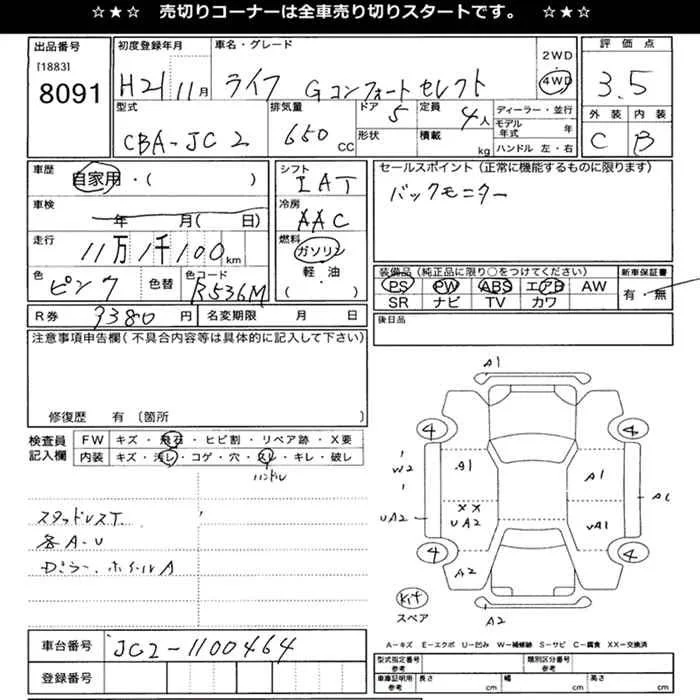 ☆★☆ 売切りコーナーは全車売り切りスタートです。 ☆★☆
出品番号 初度登録年月 車名・グレード 2WD 評価点
[1883] 8091 H21 11月 ライフ Gコンフォートセレクト 4WD 3.5
型式 排気量 ドア 定員 ディーラー・並行 外装 内装
CBA-JC2 650CC 5 4人 モデル年式 年 C B
形状 積載 kg ハンドル 左・右
車歴 自家用・( ) シフト IAT セールスポイント(正常に機能するものに限ります)
車検 年 月( 日) 冷房 AAC バックモニター
走行 11万1千100km 燃料 ガソリン
軽・油
( )
色 ピンク 色替 色コード R536M
装備品(純正品に限り○をつけてください) 新車保証書
PS PW ABS エアB AW 有・無
SR ナビ TV カワ
R券 9380円 名変期限 月 日 後日品
注意事項申告欄(不具合内容等は具体的に記入して下さい)
修復歴 有(箇所 )
検査員記入欄 FW キズ・飛石・ヒビ割・リペア跡・X要
内装 キズ・汚レ・コゲ・穴・スレ・キレ・破レ
ハンドル
スタッドレスT
各A・U
Dミラー、ホイールA
A1
4 4
W2 A1 A1 A1
UA2 XX UA2 UA1
4 4
A2
Kit
スペア
A2
A-キズ E-エクボ U-凹み W-補修跡 S-サビ C-腐食 XX-交換済
車台番号 JC2-1100464
登録番号
型式指定番号参考 類別区分番号参考
車庫証明用参考 長さ cm 幅 cm 高さ cm